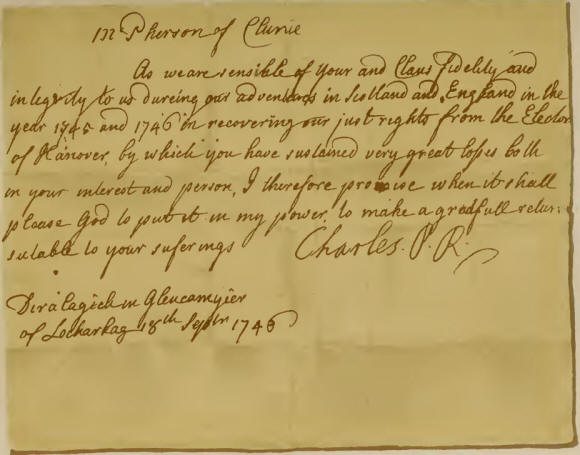 McPherson of Clunie
As we are sensible of your and Clans fidelity and
integrity to us dureing our adventurs in Scotland and England in the
year 1745 and 1746 in recovering our just rights from the Elector
of Hanover, by which you have sustained very great losses both
in your interest and person, I therefore promise when it shall
please God to put it in my power, to make a gredfull return
sutable to your suferings
Charles. P. R.
Diralagich in Glencamyier
of Locharkag 18th Septr 1746